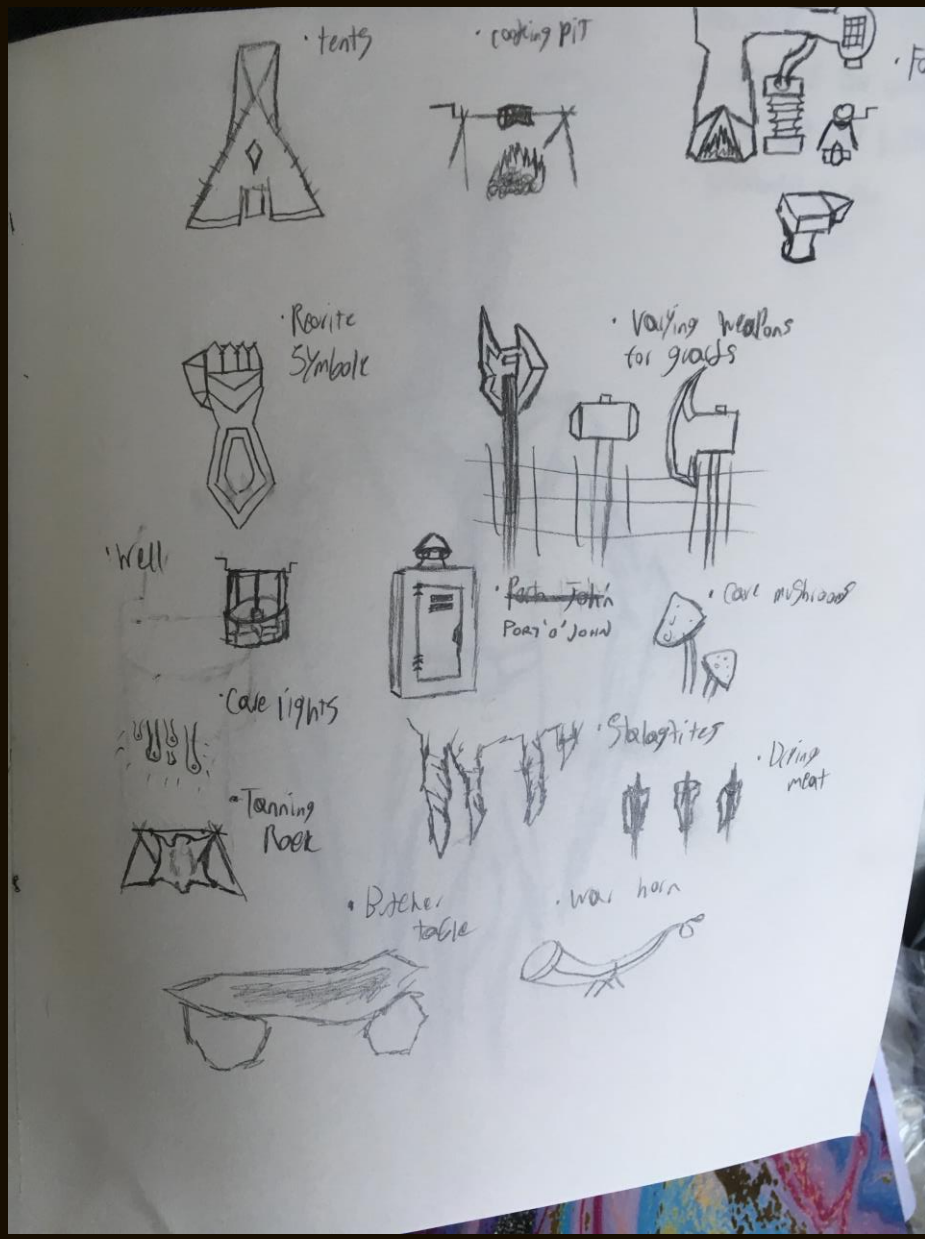 · tents
· cooking pit
· Fo
· Reorite
Symbole
· Varying Weapons
for grads
· Well
· Porta John
PORT'O'JOHN
· Cave mushrooms
· Cave lights
· Stalagtites
· Drying
meat
· Tanning
Rack
· Butcher
table
· war horn